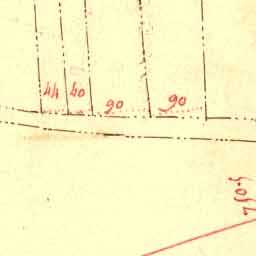 44 40
90 90